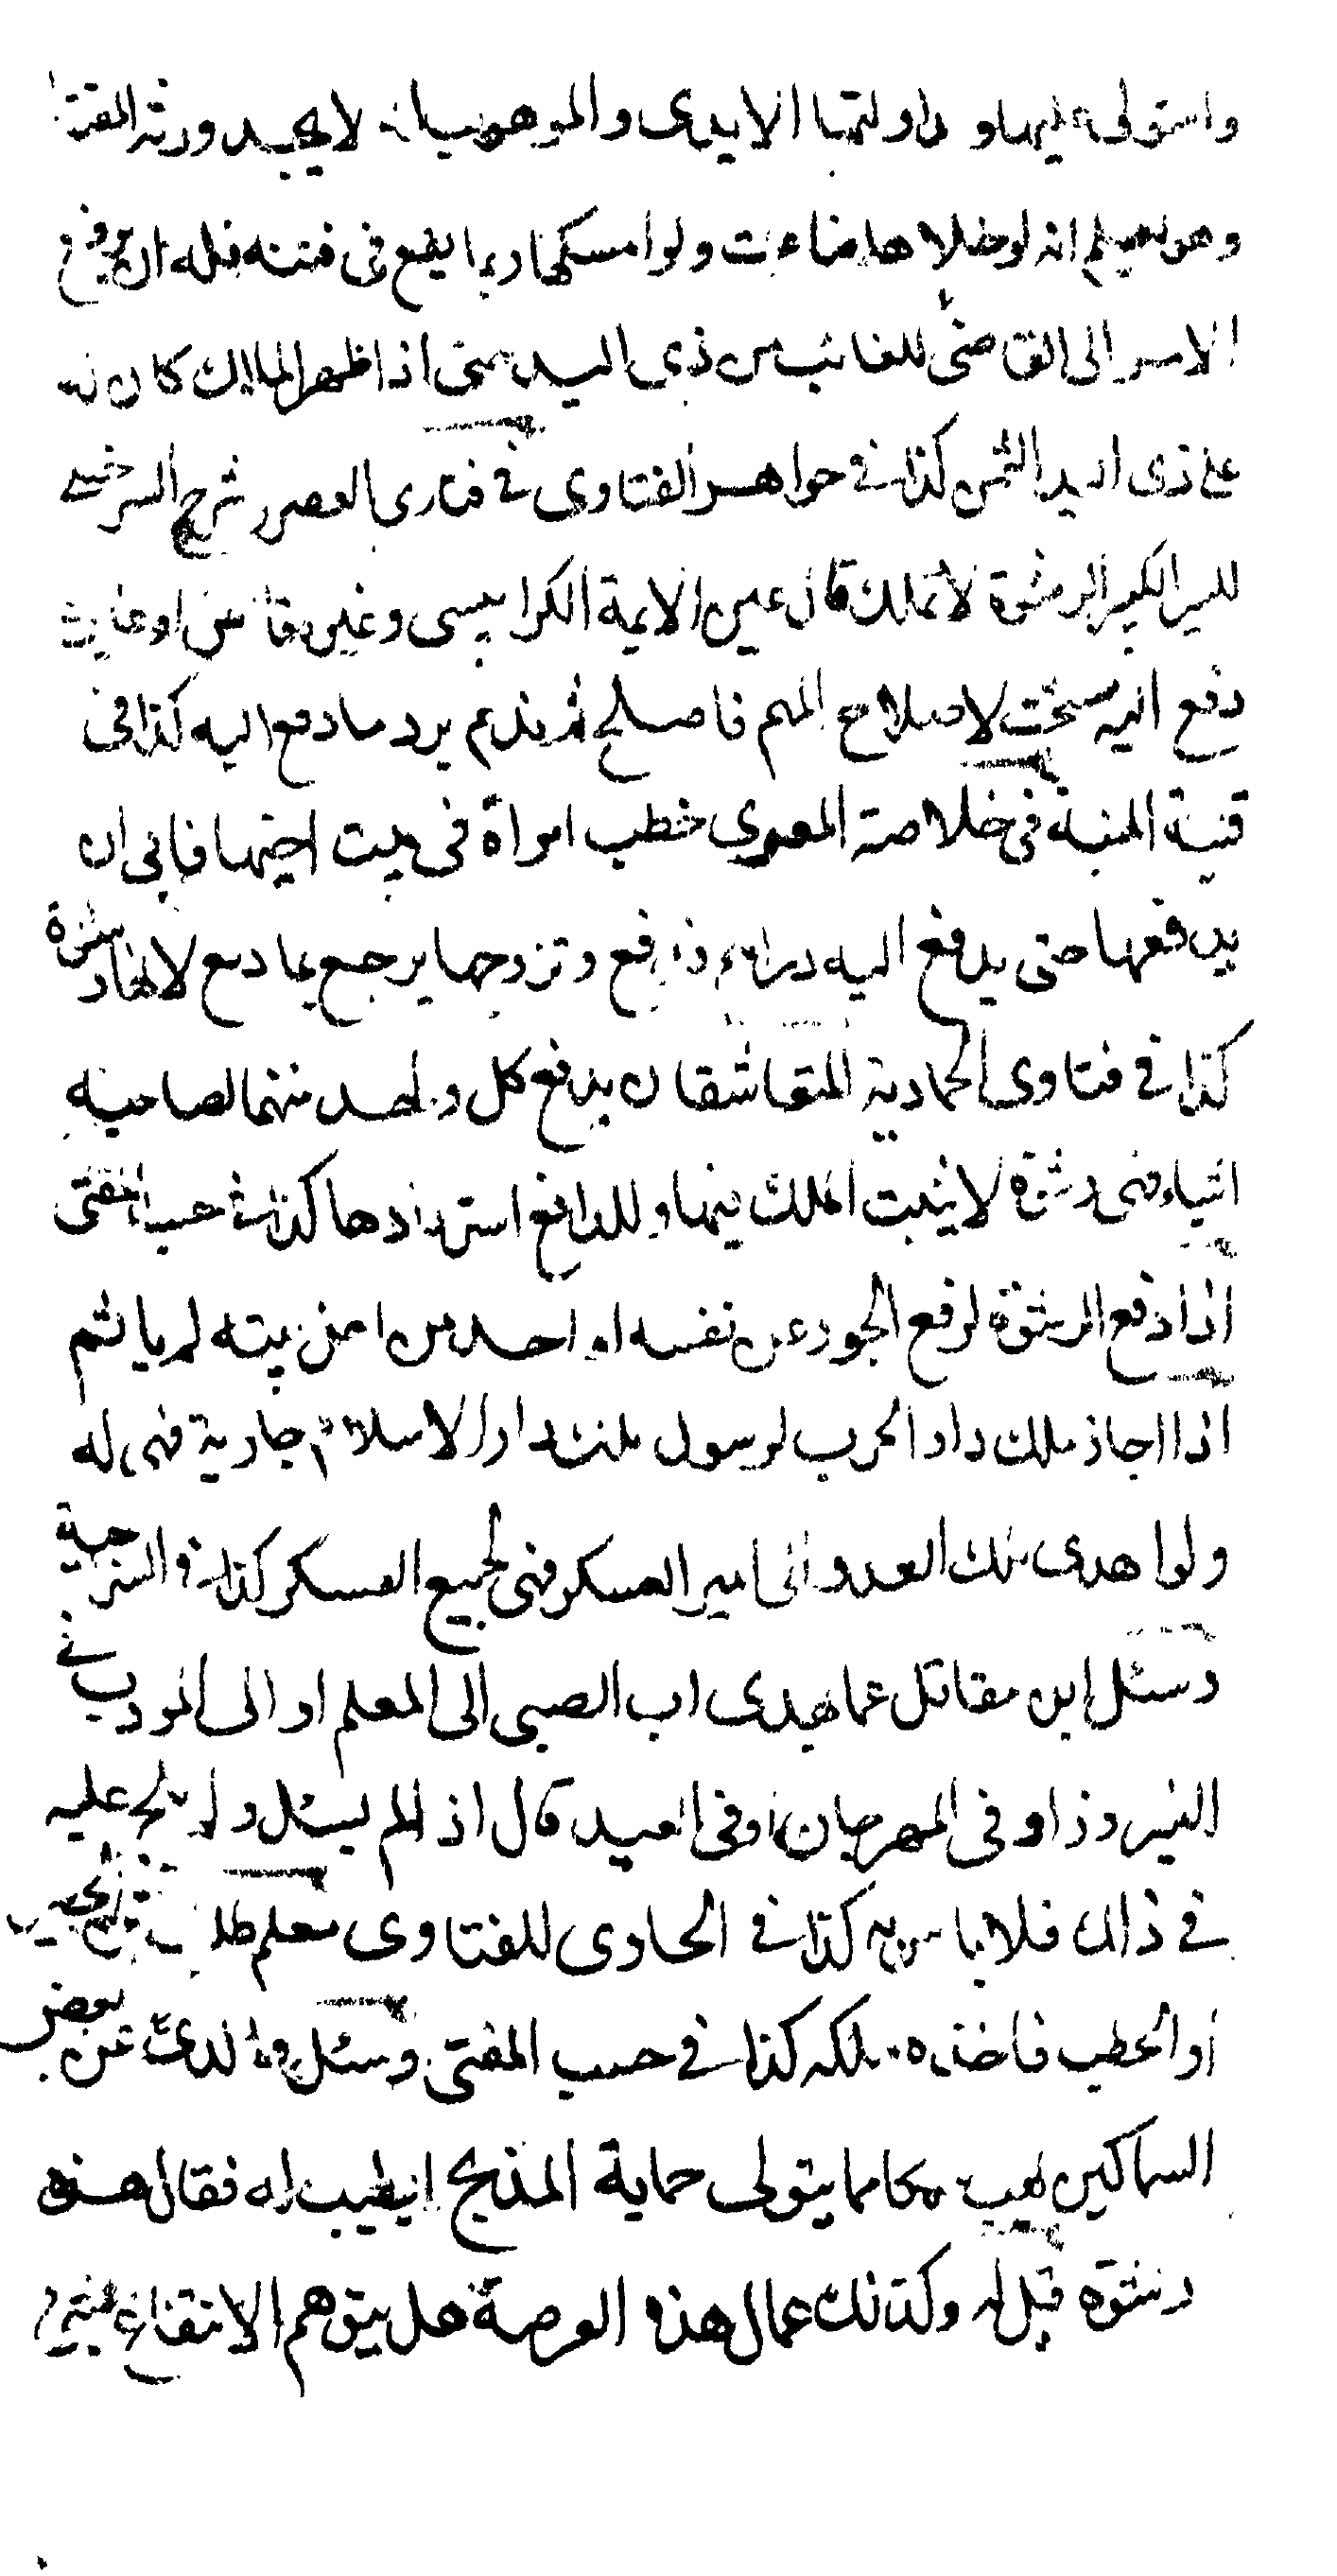 واستولى عليها و داولتها الايدى والموهوب لا يجد ورثة المقت
وهو يعلم انه لو خلاها ضاعت ولو امسكها ربما يقع فى فتنة فله ان يرفع
الامر الى القاضى للغائب من ذى اليد حتى اذا ظهر المالك كان له
على ذى اليد الثمن كذا فى جواهر الفتاوى فى فتاوى العصر شرح السرخسى
للسير الكبير الرشوة لا تملك قال عين الايمة الكرابيسى وغيره قاض او غايث
دفع اليه سحت لاصلاح المهم فاصلح ثم ندم يرد ما دفع اليه كذا فى
قنية المنية فى خلاصة خطب امراة فى بيت اختها فابى ان
يدفعها حتى يدفع اليه دراهم فدفع وتزوجها يرجع بما دفع لانها رشوة
كذا فى فتاوى الحمادية المتعاشقان يدفع كل واحد منهما لصاحبه
اشياء فهى رشوة لا يثبت الملك فيها وللدافع استردادها كذا فى حسب المفتى
اذا دفع الرشوة لرفع الجور عن نفسه او احد من اهل بيته لم ياثم
اذا اجاز ملك دار الحرب لرسول ملك دار الاسلام جارية فهى له
ولو اهدى ملك العدو الى امير العسكر فهى لجميع العسكر كذا فى السرجية
وسئل ابن مقاتل عما يهدى اب الصبى الى المعلم او الى المودب فى
النيروز او فى المهرجان او فى العيد قال اذا لم يسئل ولم يلح عليه
فى ذالك فلا باس به كذا فى الحاوى للفتاوى معلم طلب
او الحطب فاخذه ملكه كذا فى حسب المفتى وسئل والدى عن بعض
الساكين مما يتولى حماية المذبح ايطيب له فقال هذه
رشوة قيل له وكذلك عمال هذه العرصة هل يتوهم الانتفاع